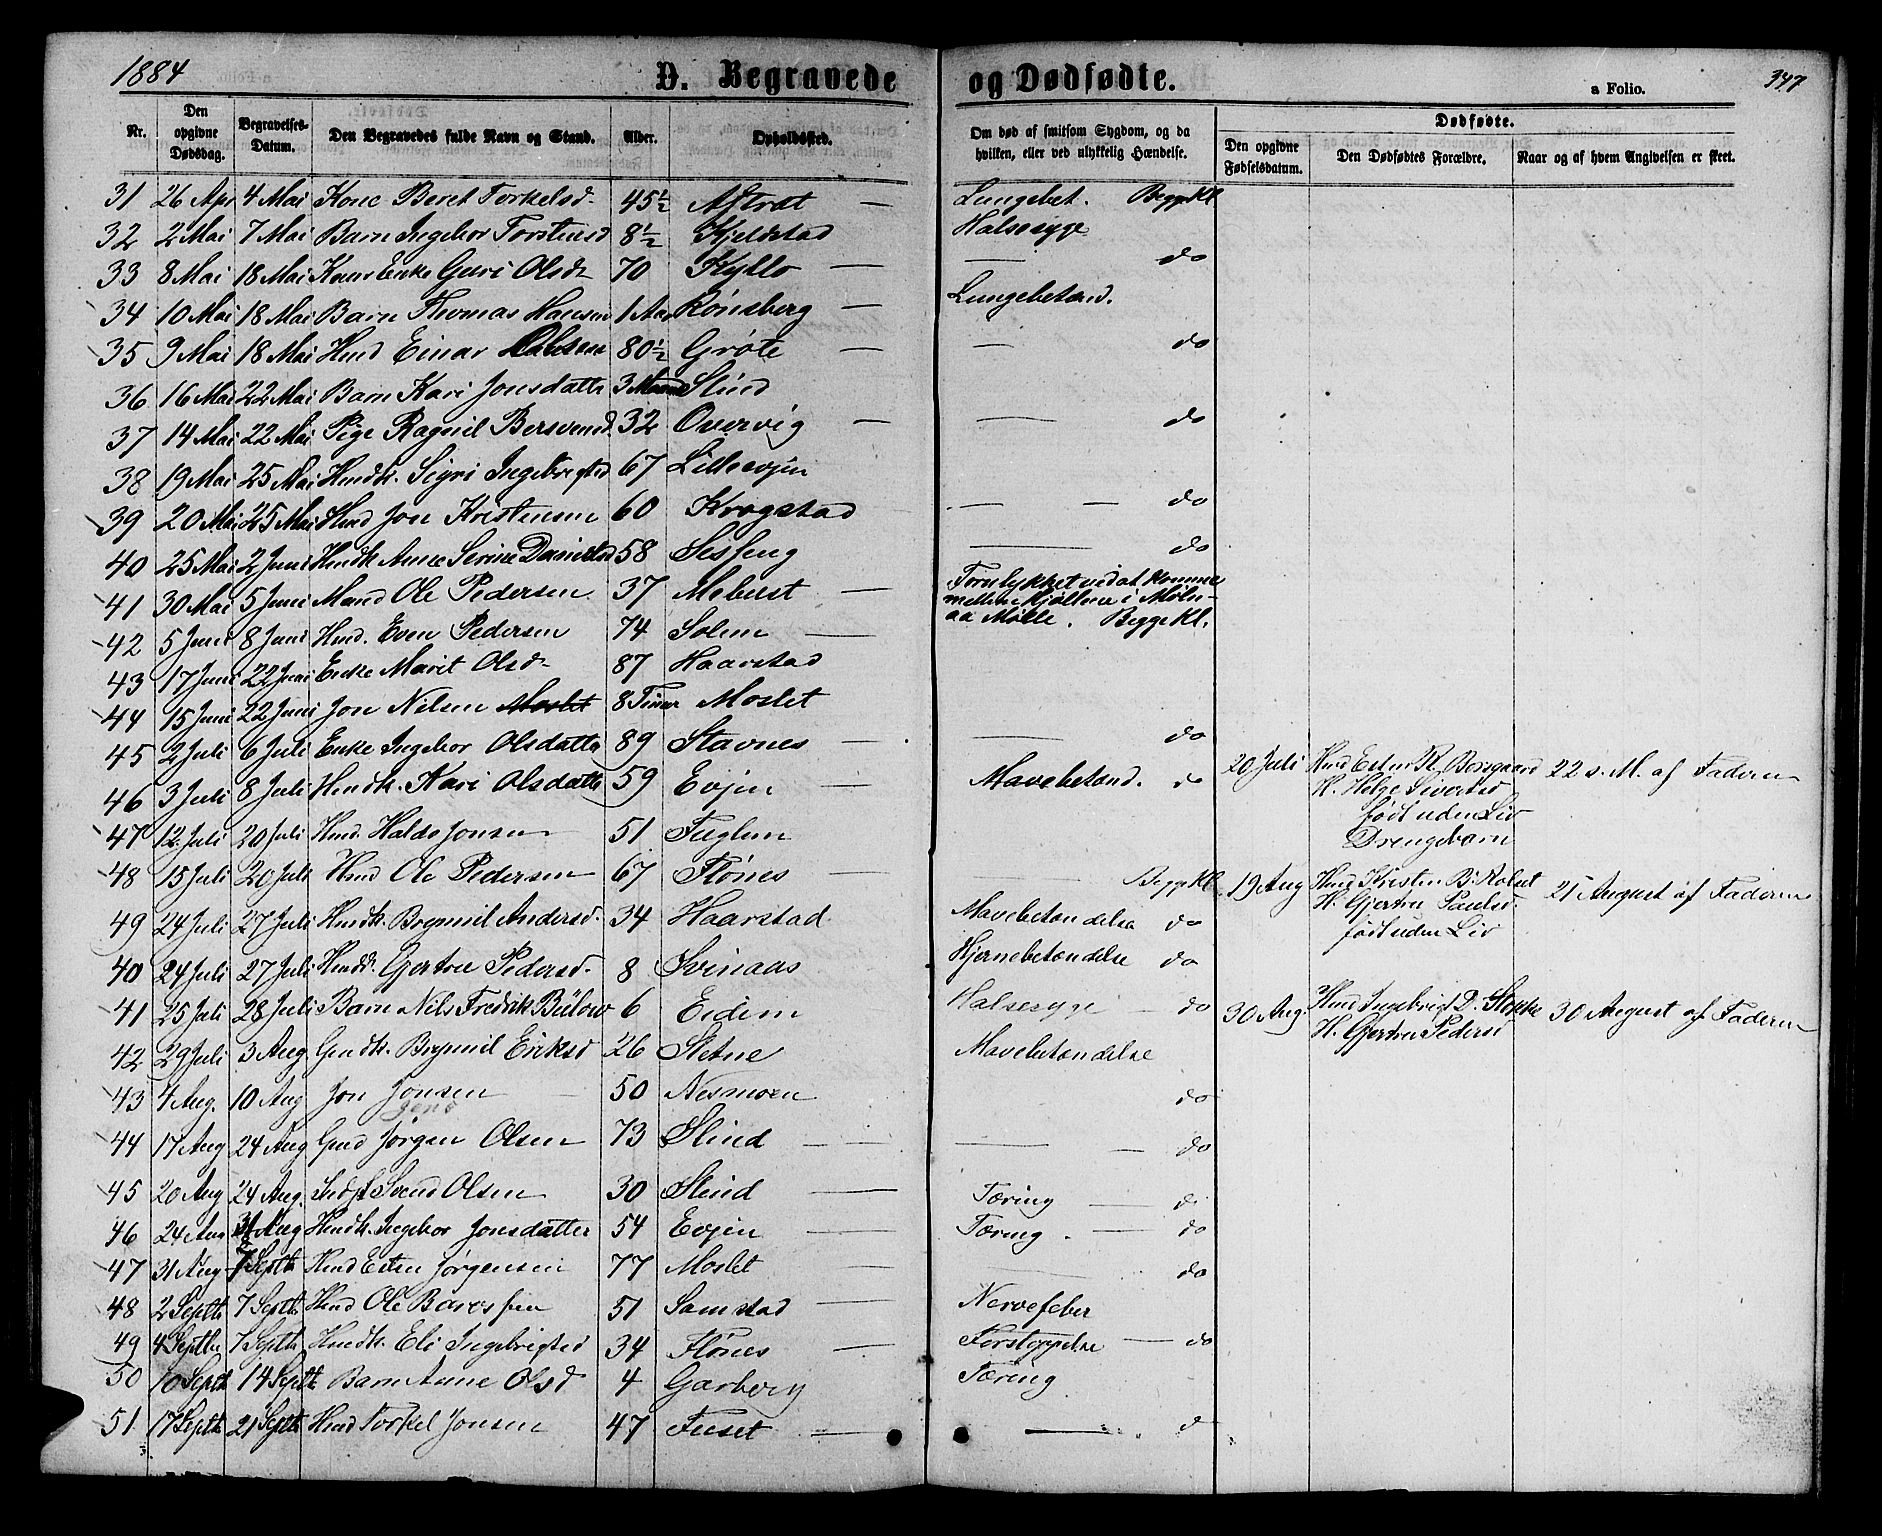 1884
D. Begravede og Dødfødte.
a Folio.
347
Nr.
Den opgivne Dødsdag.
Begravelses-Datum.
Den Begravedes fulde Navn og Stand.
Alder.
Opholdssted.
Om død af smitsom Sygdom, og da hvilken, eller ved ulykkelig Hændelse.
Dødfødte.
Den opgivne Fødselsdatum.
Den Dødfødtes Forældre.
Naar og af hvem Angivelsen er skeet.
31 26 Apr 4 Mai Kone Beret Torkelsd. 45½ Aftret — Lungebet. BeggeKl
32 2 Mai 7 Mai Barn Ingebor Torstensd 8½ Kjeldstad Halsesyge
33 8 Mai 18 Mai Enke Guri Olsd 70 Kyllo — — do
34 10 Mai 18 Mai Barn Thomas Hansen 1 Aar Rønsberg — Lungebetænd.
35 9 Mai 18 Mai Hmd Einar 80½ Grøte — — do
36 16 Mai 22 Mai Barn Kari Jonsdatte 3 Maan Slind
37 14 Mai 22 Mai Pige Ragnil Bersvensd. 32 Overvig — — do
38 19 Mai 25 Mai Hmdk. Sigri Ingebrigtsd 67 Lilleevjen
39 20 Mai 25 Mai Hmd Jon Kristensen 60 Krogstad — — do
40 25 Mai 2 Juni Hmdk Anne Serine 58 Sesseng — do
41 30 Mai 5 Juni Mand Ole Pedersen 37 Mebust — Forulykket ved at komme
mellem Hjullene i Mølnaa
Mølle. BeggeKl.
42 5 Juni 8 Juni Hmd. Even Pedersen 74 Solem —
43 17 Juni 22 Juni Enke Marit Olsd 87 Haarstad
44 15 Juni 22 Juni Jon Nilsen Moslet 8 Timer Moslet
45 2 Juli 6 Juli Enke Ingebor Olsdatte 89 Stavnes — — do
46 3 Juli 8 Juli Hmdk. Kari Olsdatte 59 Evjen — Mavebetænd. do
20 Juli Hmd Esten R. Borsgaard 22 s. M. af Faderen
H. Helge Sivertsd
født uden Liv
Drengebarn
47 12. Juli 20 Juli Hmd. Haldo Jonsen 51 Fuglem
48 15 Juli 20 Juli Hmd Ole Pedersen 67 Flønes — — BeggeKl.
19 Aug Hmd Kristen B. 21 August af Faderen
H. Gjertru Paulsd.
født uden Liv
49 24 Juli 27 Juli Hmdk. Brynnil Andersd. 34 Haarstad Mavebetændelse do
40 24 Juli 27 Juli Gjertru Pedersd. 8 Svinaas Hjernebetændelse do
41 25 Juli 28 Juli Barn Nils Fredrik Bülow 6 Eidem Halsesyge — do
30 Aug. Hmd Ingebrigt P. Stokke 30 August af Faderen
H. Gjertru Pedersd
42 29 Juli 3 Aug Gmdk. Brynnil Eriksd 26 Setne Mavebetændelse
43 4 Aug. 10 Aug Jon Jonsen 50 Nesmoen do
44 17 Aug 24 Aug Gmd Jørgen Olsen 73 Slind — — — — do
45 20 Aug 24 Aug. Svend Olsen 30 Slind — Tæring — do
46 24 Aug 31 Aug Hmdk. Ingebor Jonsdatter 54 Evjen — Tæring. — do
47 31 Aug 7 Septb Hmd Esten Jørgensen 77 Moslet — — do
48 2 Septb 7 Septb Hmd Ole 51 Samstad — Nervefeber
49 4 Septbe 7 Septb Hmdk. Eli Ingebrigtsd 34 Flønes — Forstoppelse — do
50 10 Septb 14 Septb Barn Anne Olsd 4 Garberg Tæring
51 17 Septb 21 Septb Hmd Torkel Jonsen 47 Fuset — — do